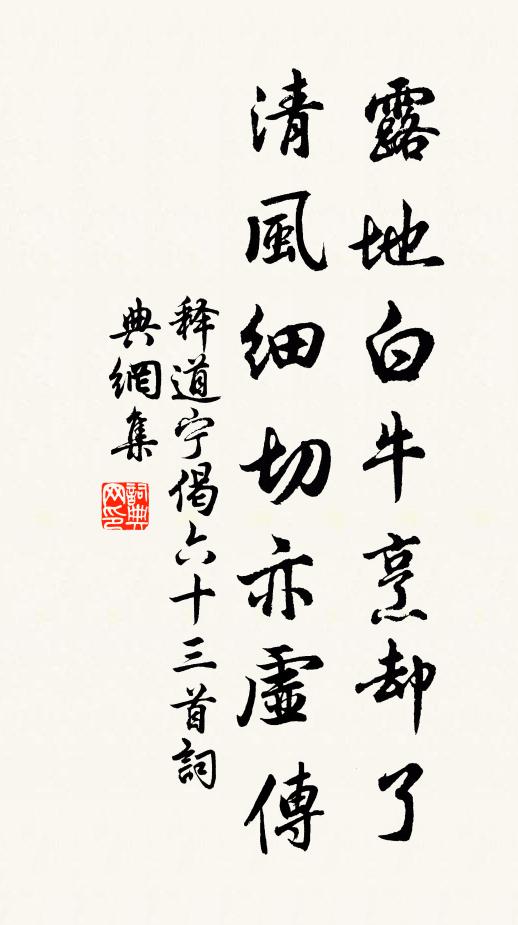 露地白牛烹却了
清風細切亦虛傳
释道宁偈六十三首詞
典網集
詞典
网印